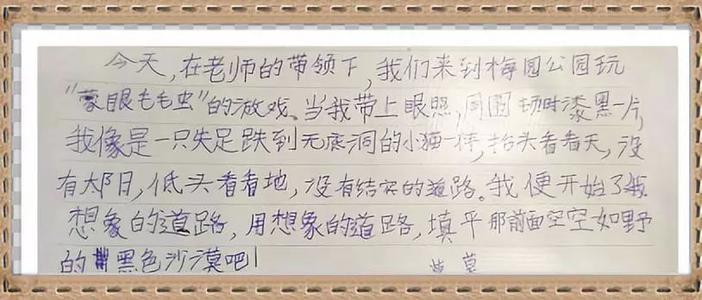 今天,在老师的带领下,我们来到梅园公园玩
"蒙眼毛毛虫"的游戏。当我带上眼照,周围顿时漆黑一片,
我像是一只失足跌到无底洞的小猫一样,抬头看看天,没
有太阳,低头看看地,没有结实的道路。我便开始了我
想象的道路,用想象的道路,填平那前面空空如野
的黑色沙漠吧!